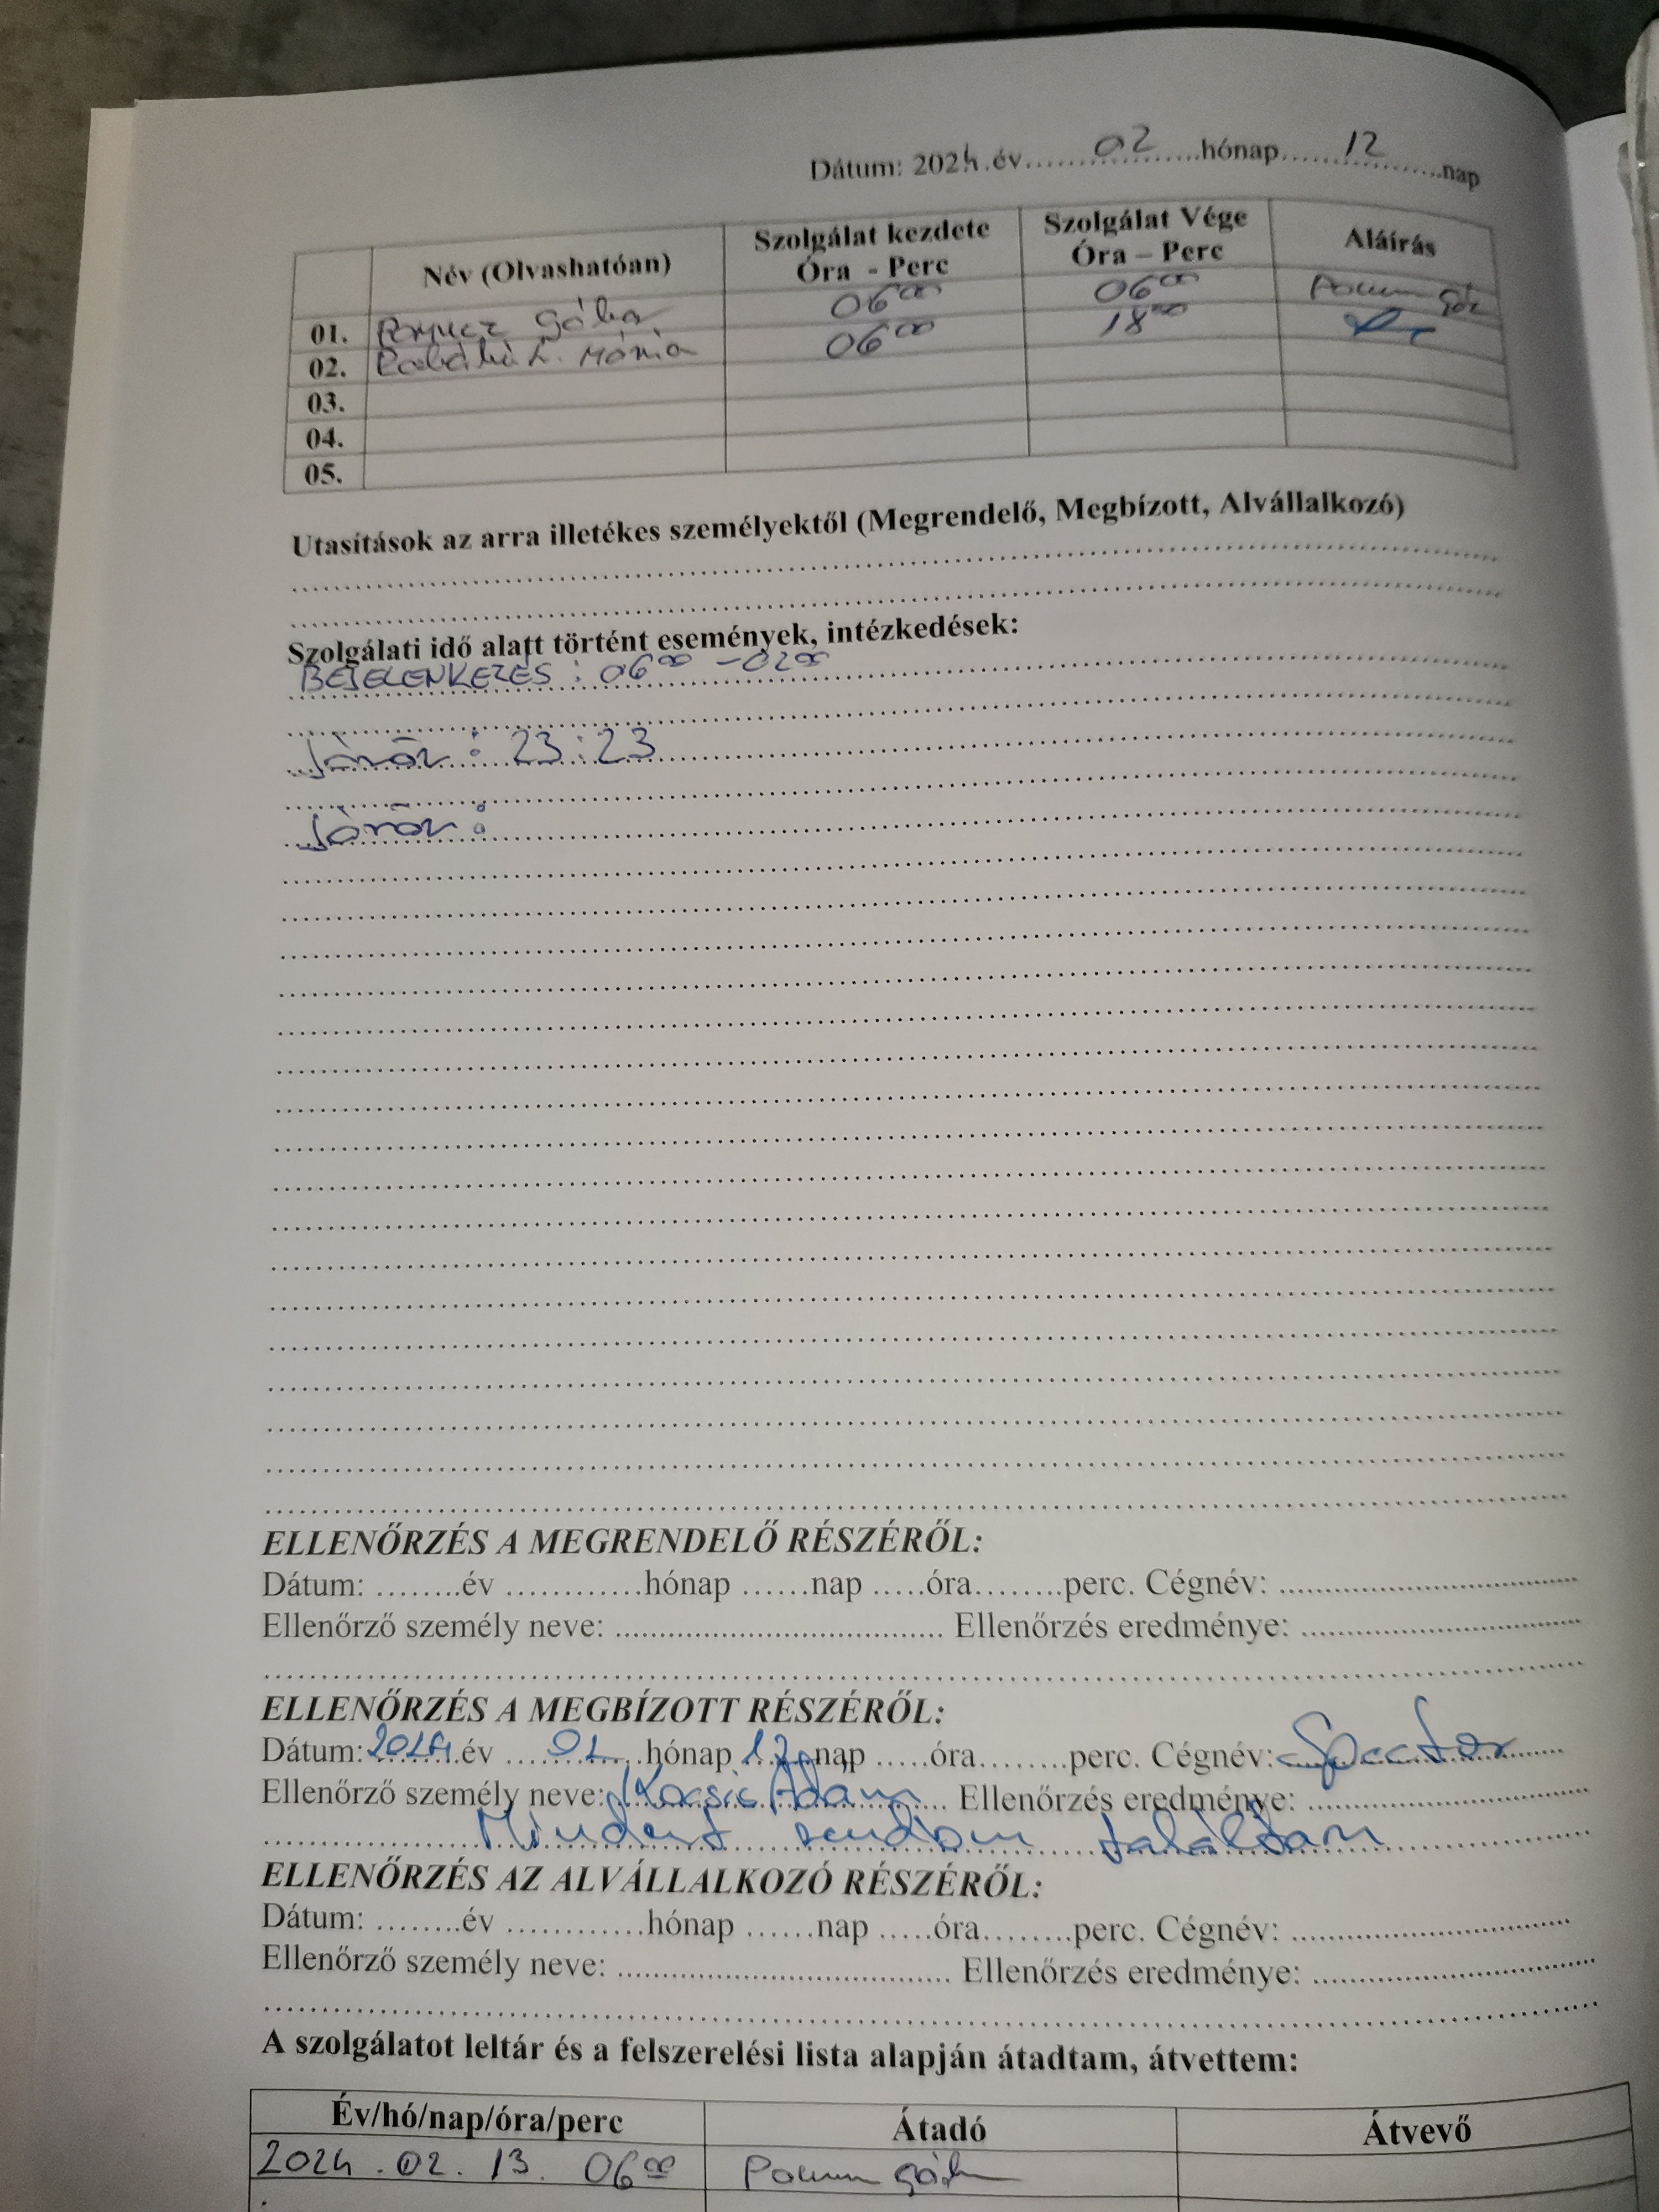 Dátum: 2024.év 02 hónap 12 nap
Név (Olvashatóan) Szolgálat kezdete Óra - Perc Szolgálat Vége Óra – Perc Aláírás
01. Gábor 06 00 06 00
02. Mária 06 00 18 00
03.
04.
05.
Utasítások az arra illetékes személyektől (Megrendelő, Megbízott, Alvállalkozó)
Szolgálati idő alatt történt események, intézkedések:
BEJELENKEZÉS : 06 00 - 02 00
Járőr : 23:23
Járőr :
ELLENŐRZÉS A MEGRENDELŐ RÉSZÉRŐL:
Dátum: ........év ............hónap ......nap .....óra........perc. Cégnév:
Ellenőrző személy neve: Ellenőrzés eredménye:
ELLENŐRZÉS A MEGBÍZOTT RÉSZÉRŐL:
Dátum: 2024 év hónap 12 nap .....óra........perc. Cégnév:
Ellenőrző személy neve: Kocsis Ádám Ellenőrzés eredménye:
Mindent rendben találtam
ELLENŐRZÉS AZ ALVÁLLALKOZÓ RÉSZÉRŐL:
Dátum: ........év ............hónap ......nap .....óra........perc. Cégnév:
Ellenőrző személy neve: Ellenőrzés eredménye:
A szolgálatot leltár és a felszerelési lista alapján átadtam, átvettem:
Év/hó/nap/óra/perc Átadó Átvevő
2024.02.13. 06 00